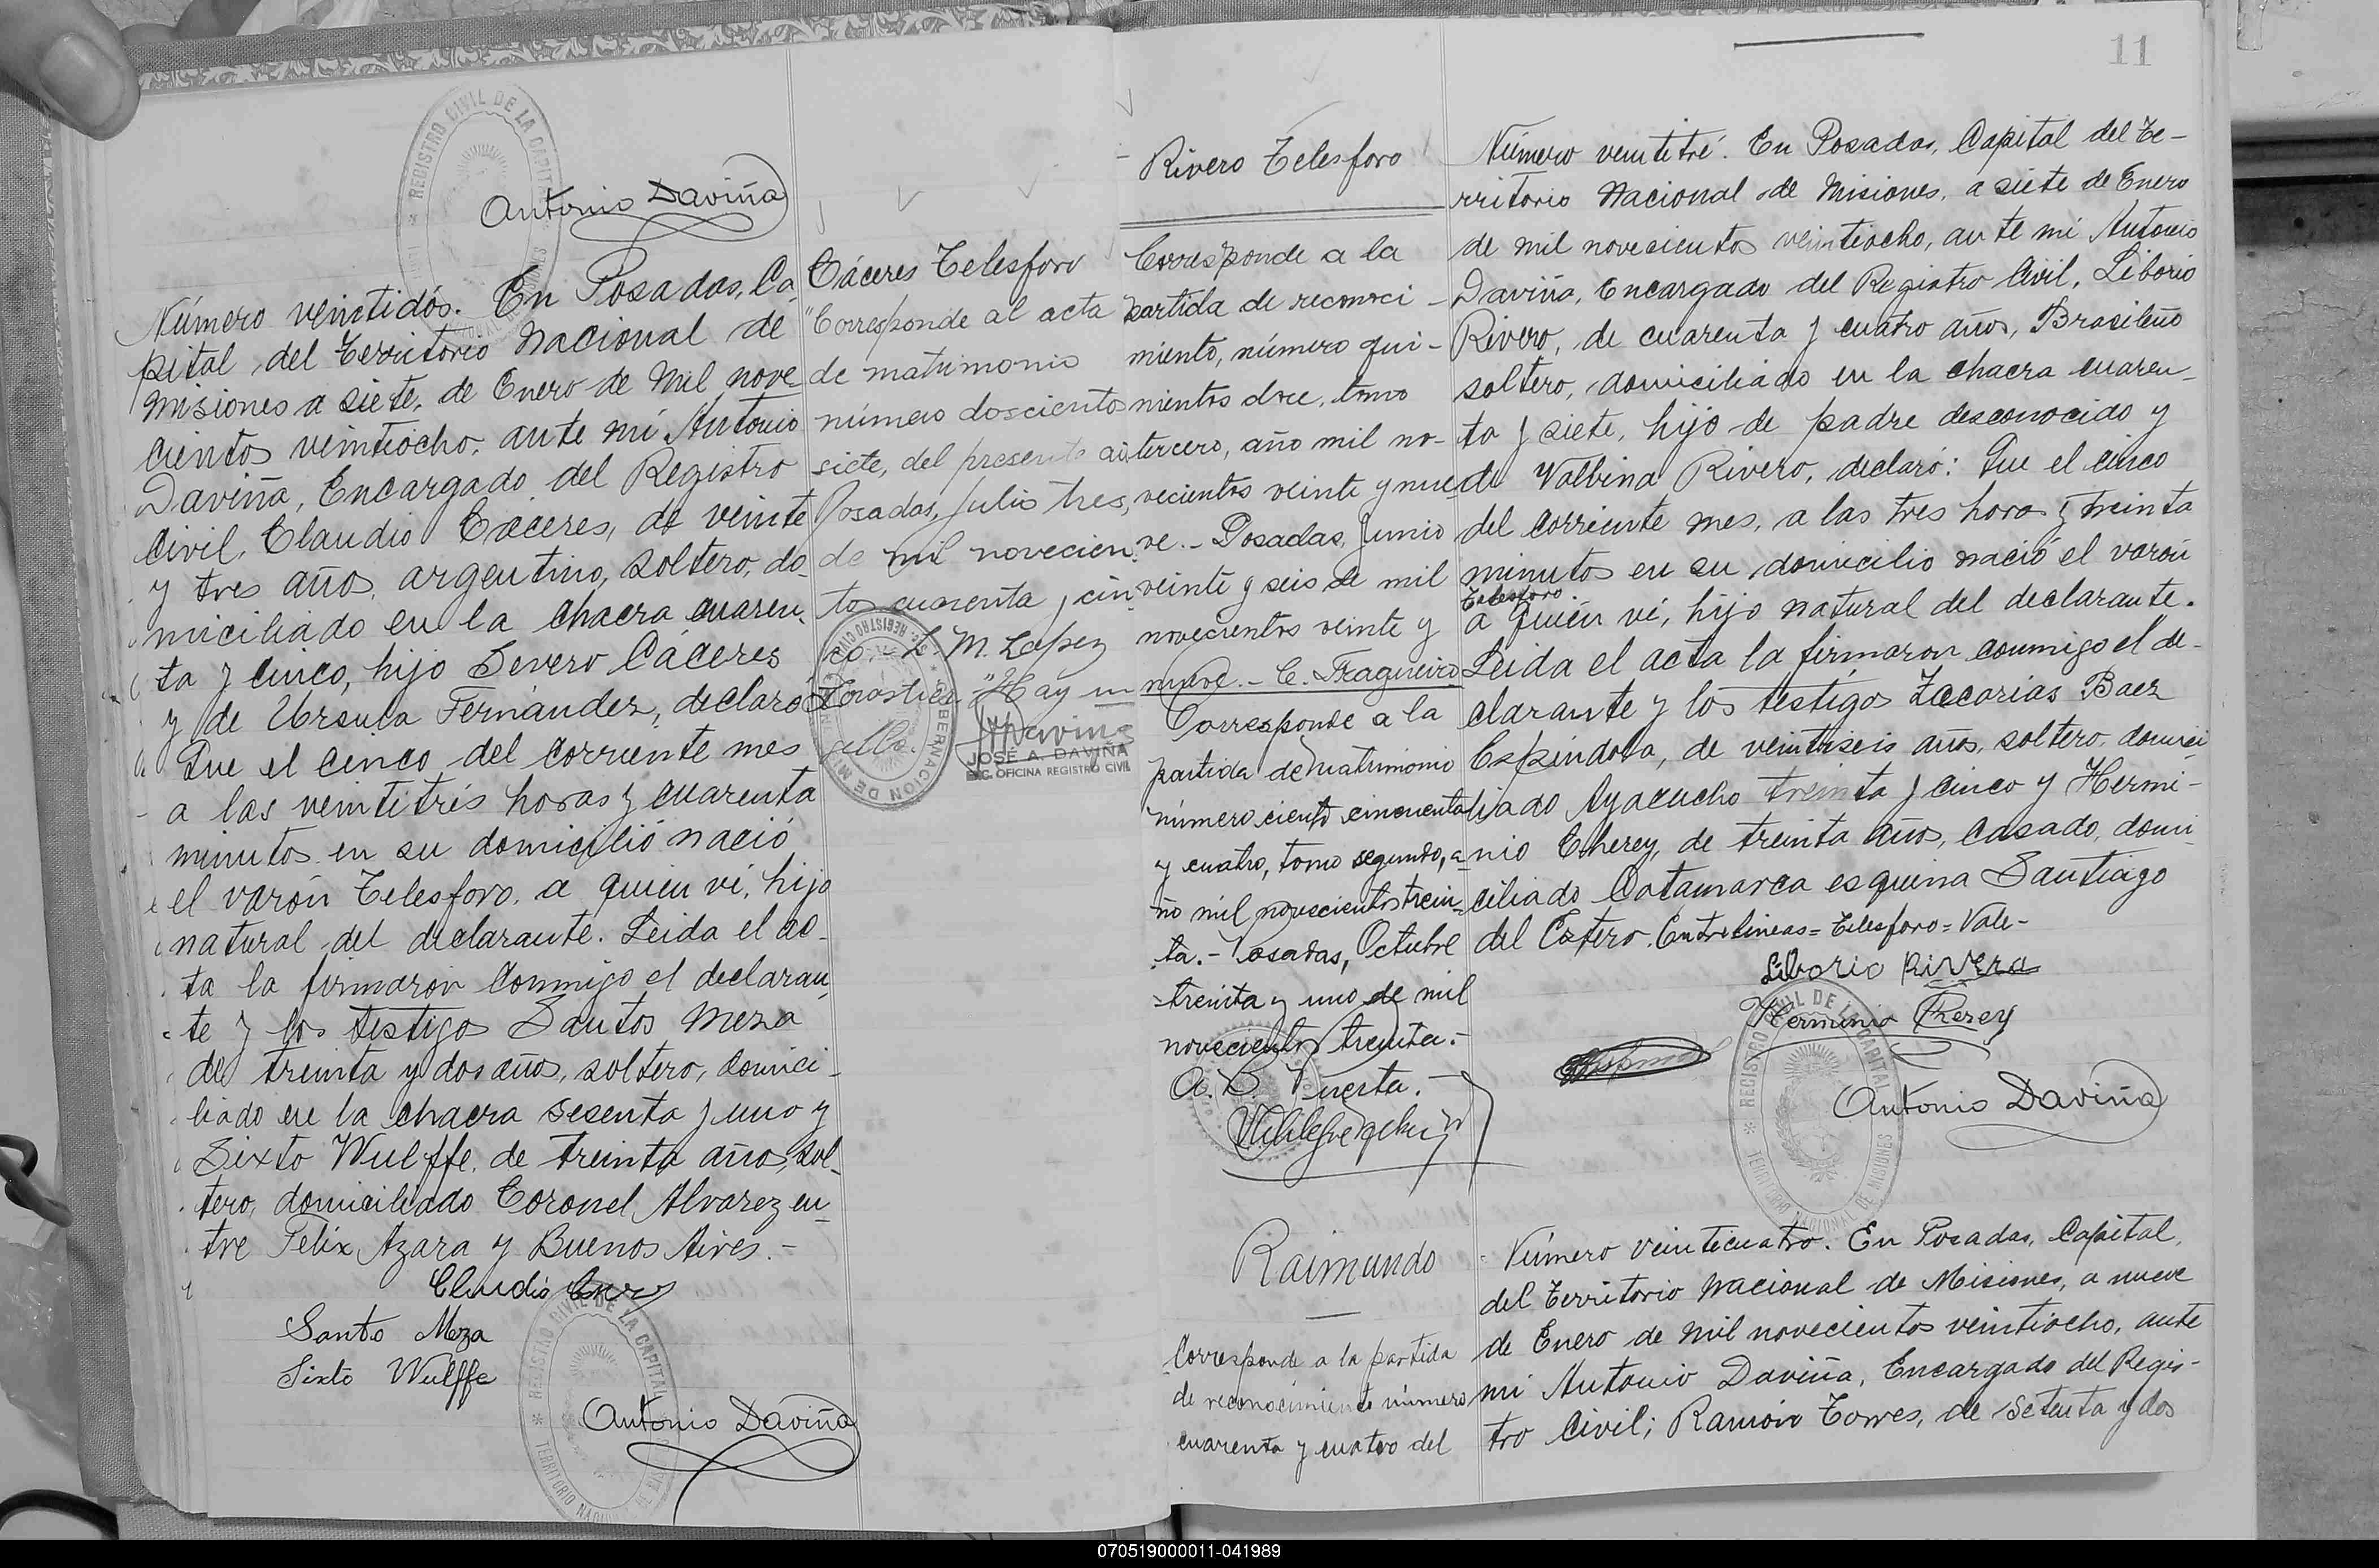 Antonio Daviña
REGISTRO CIVIL DE LA CAPITAL
Número veintidós. En Posadas, Ca-
pital del Territorio Nacional de
Misiones a siete, de Enero de Mil nove
cientos veintiocho, ante mí Antonio
Daviña, Encargado del Registro
Civil, Claudio Cáceres, de veinte
y tres años, argentino, soltero, do-
miciliado en la chacra cuaren-
ta y cinco, hijo Severo Cáceres
y de Ursula Fernández, declaró
Que el cinco del corriente mes
a las veintitrés horas y cuarenta
minutos en su domicilió nació
el varón Telesforo, a quien ví, hijo
natural del declarante. Leida el ac-
ta la firmaron conmigo el declaran
te y los testigos Santos Meza
de treinta y dos años, soltero, domici-
liado en la chacra sesenta y uno y
Sixto Wulffe, de treinta años, sol-
tero, domiciliado Coronel Alvarez en-
tre Felix Azara y Buenos Aires.-
Claudio
Santo Meza
Sixto Wulffe
Antonio Daviña
REGISTRO CIVIL DE LA CAPITAL
TERRITORIO NACIONAL DE MISIONES
Cáceres Telesforo
"Corresponde al acta
de matrimonio
número doscientos
siete, del presente año
Posadas, Julio tres,
de mil novecien-
tos cuarenta y cin-
co.- L. M. Lopez
"Hay un
sello.
JOSÉ A. DAVIÑA
ENC. OFICINA REGISTRO CIVIL
11
Rivero Telesforo
Corresponde a la
partida de reconoci-
miento, número qui-
nientos doce, tomo
tercero, año mil no-
vecientos veinte y nue-
ve.- Posadas, Junio
veinte y seis de mil
novecientos veinte y
nueve.- C. Fragueiro
Corresponde a la
partida de matrimonio
número ciento cincuenta
y cuatro, tomo segundo, a-
ño mil novecientos trein-
ta.- Posadas, Octubre
treinta y uno de mil
novecientos treinta.-
A. B. Puerta.-
Número veintitré. En Posadas, Capital del Te-
rritorio Nacional de Misiones, a siete de Enero
de mil novecientos veintiocho, ante mi Antonio
Daviña, Encargado del Registro Civil, Liborio
Rivero, de cuarenta y cuatro años, Brasileño
soltero, domiciliado en la chacra cuaren-
ta y siete, hijo de padre desconocido y
de Valbina Rivero, declaró: Que el cinco
del corriente mes, a las tres horas y treinta
minutos en su domicilio nació el varón
Telesforo
a quién ví, hijo natural del declarante.
Leida el acta la firmaron conmigo el de-
clarante y los testigos Zacarias Baez
Espindola, de veintiseis años, soltero, domici
liado Ayacucho treinta y cinco y Hermi-
nio Cherey, de treinta años, casado, domi-
ciliado Catamarca esquina Santiago
del Estero. Entrelineas=Telesforo=Vale-
Liborio Rivera
Herminio Cherey
Antonio Daviña
REGISTRO CIVIL DE LA CAPITAL
TERRITORIO NACIONAL DE MISIONES
Raimundo
Corresponde a la partida
de reconocimiento número
cuarenta y cuatro del
Número veinticuatro. En Posadas, Capital,
del Territorio Nacional de Misiones, a nueve
de Enero de Mil novecientos veintiocho, ante
mi Antonio Daviña, Encargado del Regis-
tro Civil; Ramón Torres, de setenta y dos
070519000011-041989